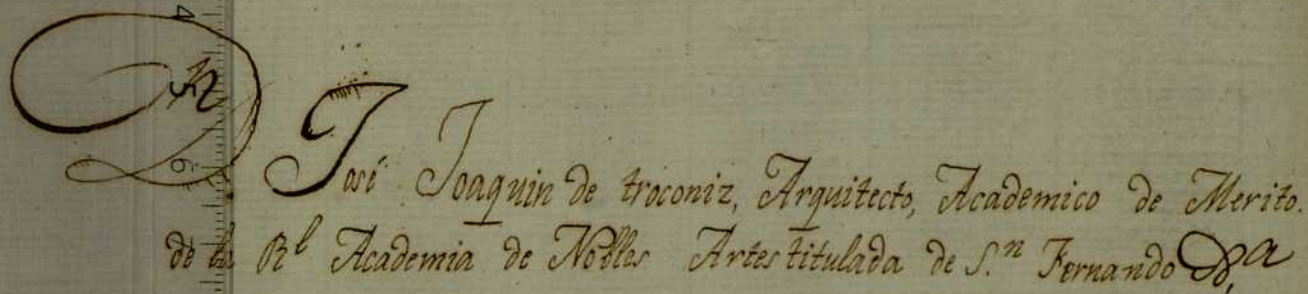 4
5
6
Dn José Joaquin de troconiz, Arquitecto, Academico de Merito.
de la Rl Academia de Nobles Artes titulada de S.n Fernando &.a